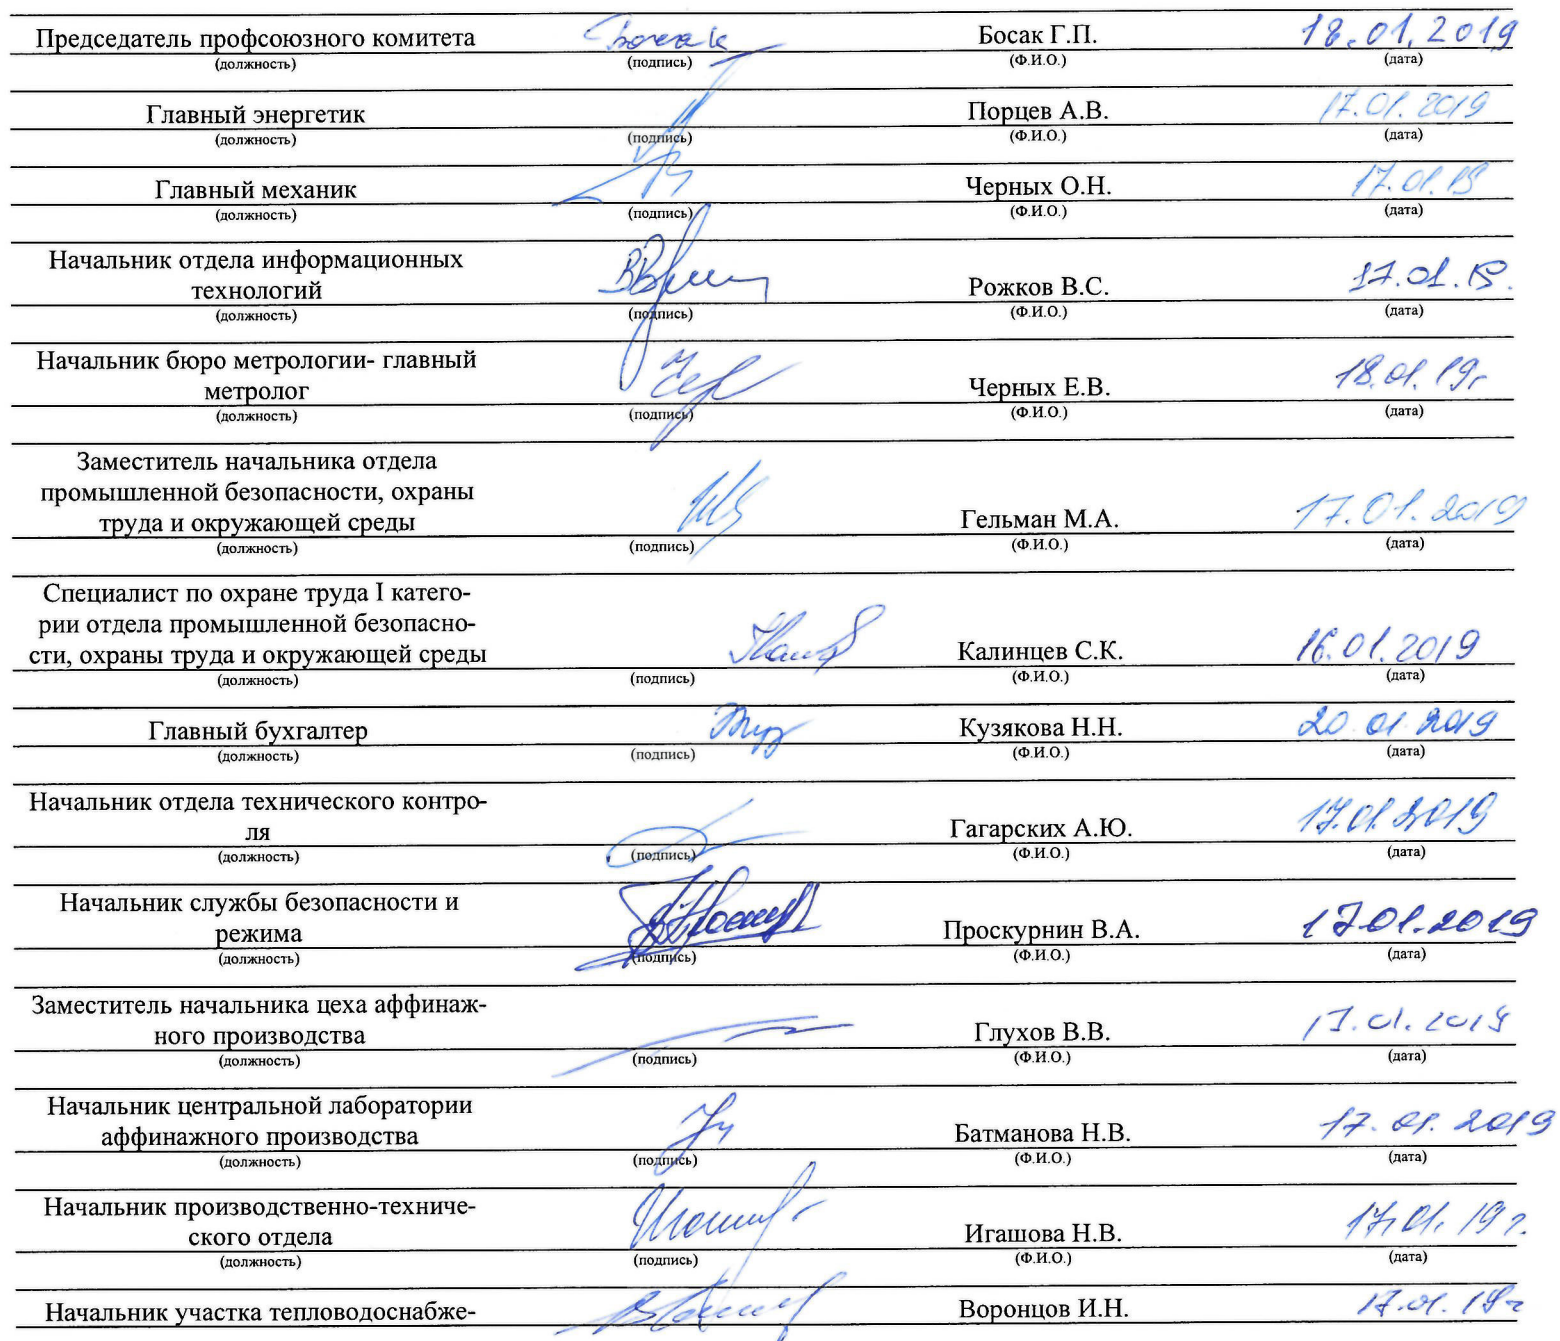 Председатель профсоюзного комитета Босак Г.П. 18.01.2019
(должность) (подпись) (Ф.И.О.) (дата)
Главный энергетик Порцев А.В. 17.01.2019
(должность) (подпись) (Ф.И.О.) (дата)
Главный механик Черных О.Н. 17.01.19
(должность) (подпись) (Ф.И.О.) (дата)
Начальник отдела информационных
технологий Рожков В.С. 17.01.19.
(должность) (подпись) (Ф.И.О.) (дата)
Начальник бюро метрологии- главный
метролог Черных Е.В. 18.01.19г
(должность) (подпись) (Ф.И.О.) (дата)
Заместитель начальника отдела
промышленной безопасности, охраны
труда и окружающей среды Гельман М.А. 17.01.2019
(должность) (подпись) (Ф.И.О.) (дата)
Специалист по охране труда I катего-
рии отдела промышленной безопасно-
сти, охраны труда и окружающей среды Калинцев С.К. 16.01.2019
(должность) (подпись) (Ф.И.О.) (дата)
Главный бухгалтер Кузякова Н.Н. 20.01.2019
(должность) (подпись) (Ф.И.О.) (дата)
Начальник отдела технического контро-
ля Гагарских А.Ю. 17.01.2019
(должность) (подпись) (Ф.И.О.) (дата)
Начальник службы безопасности и
режима Проскурнин В.А. 17.01.2019
(должность) (подпись) (Ф.И.О.) (дата)
Заместитель начальника цеха аффинаж-
ного производства Глухов В.В. 17.01.2019
(должность) (подпись) (Ф.И.О.) (дата)
Начальник центральной лаборатории
аффинажного производства Батманова Н.В. 17.01.2019
(должность) (подпись) (Ф.И.О.) (дата)
Начальник производственно-техниче-
ского отдела Игашова Н.В. 17.01.19г.
(должность) (подпись) (Ф.И.О.) (дата)
Начальник участка тепловодоснабже- Воронцов И.Н. 17.01.19г